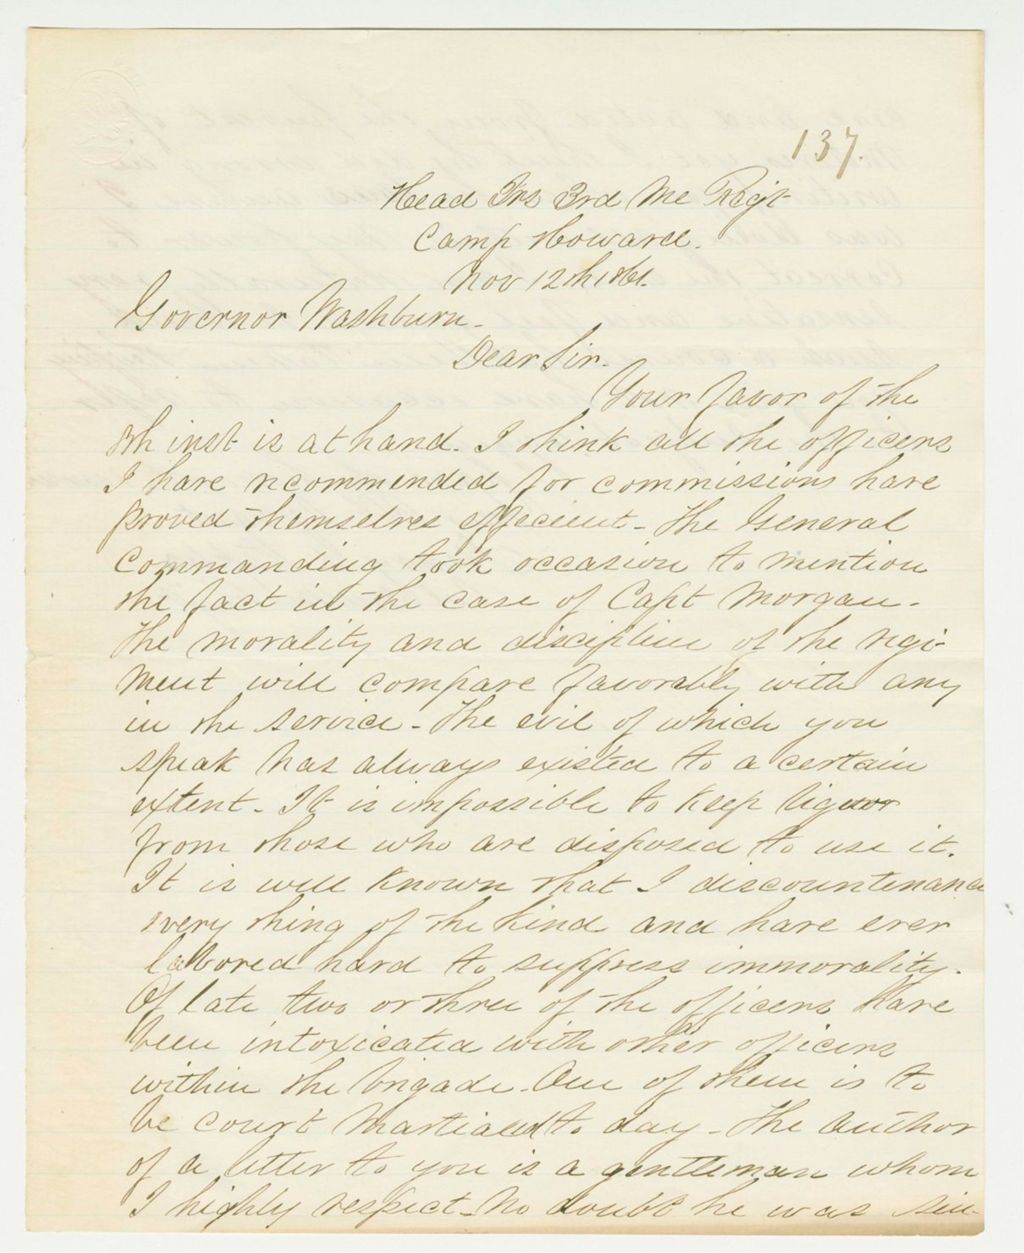 137.
Head Qrs 3rd Me Regt
Camp Howard.
Nov 12th 1861.
Governor Washburn.
Dear Sir.
Your favor of the
8th inst is at hand. I think all the officers
I have recommended for commissions have
proved themselves effecient. The General
Commanding took occasion to mention
the fact in the case of Capt Morgan.
The morality and discipline of the regi-
ment will compare favorably with any
in the service. The evil of which you
speak has always existed to a certain
extent. It is impossible to keep liquor
from those who are disposed to use it.
It is well known that I discountenance
every thing of the kind and have ever
labored hard to suppress immorality.
Of late two or three of the officers have
been intoxicated with other officers
within the brigade. One of them is to
be court martialed to day. The author
of a letter to you is a gentleman whom
I highly respect. No doubt he was sin-